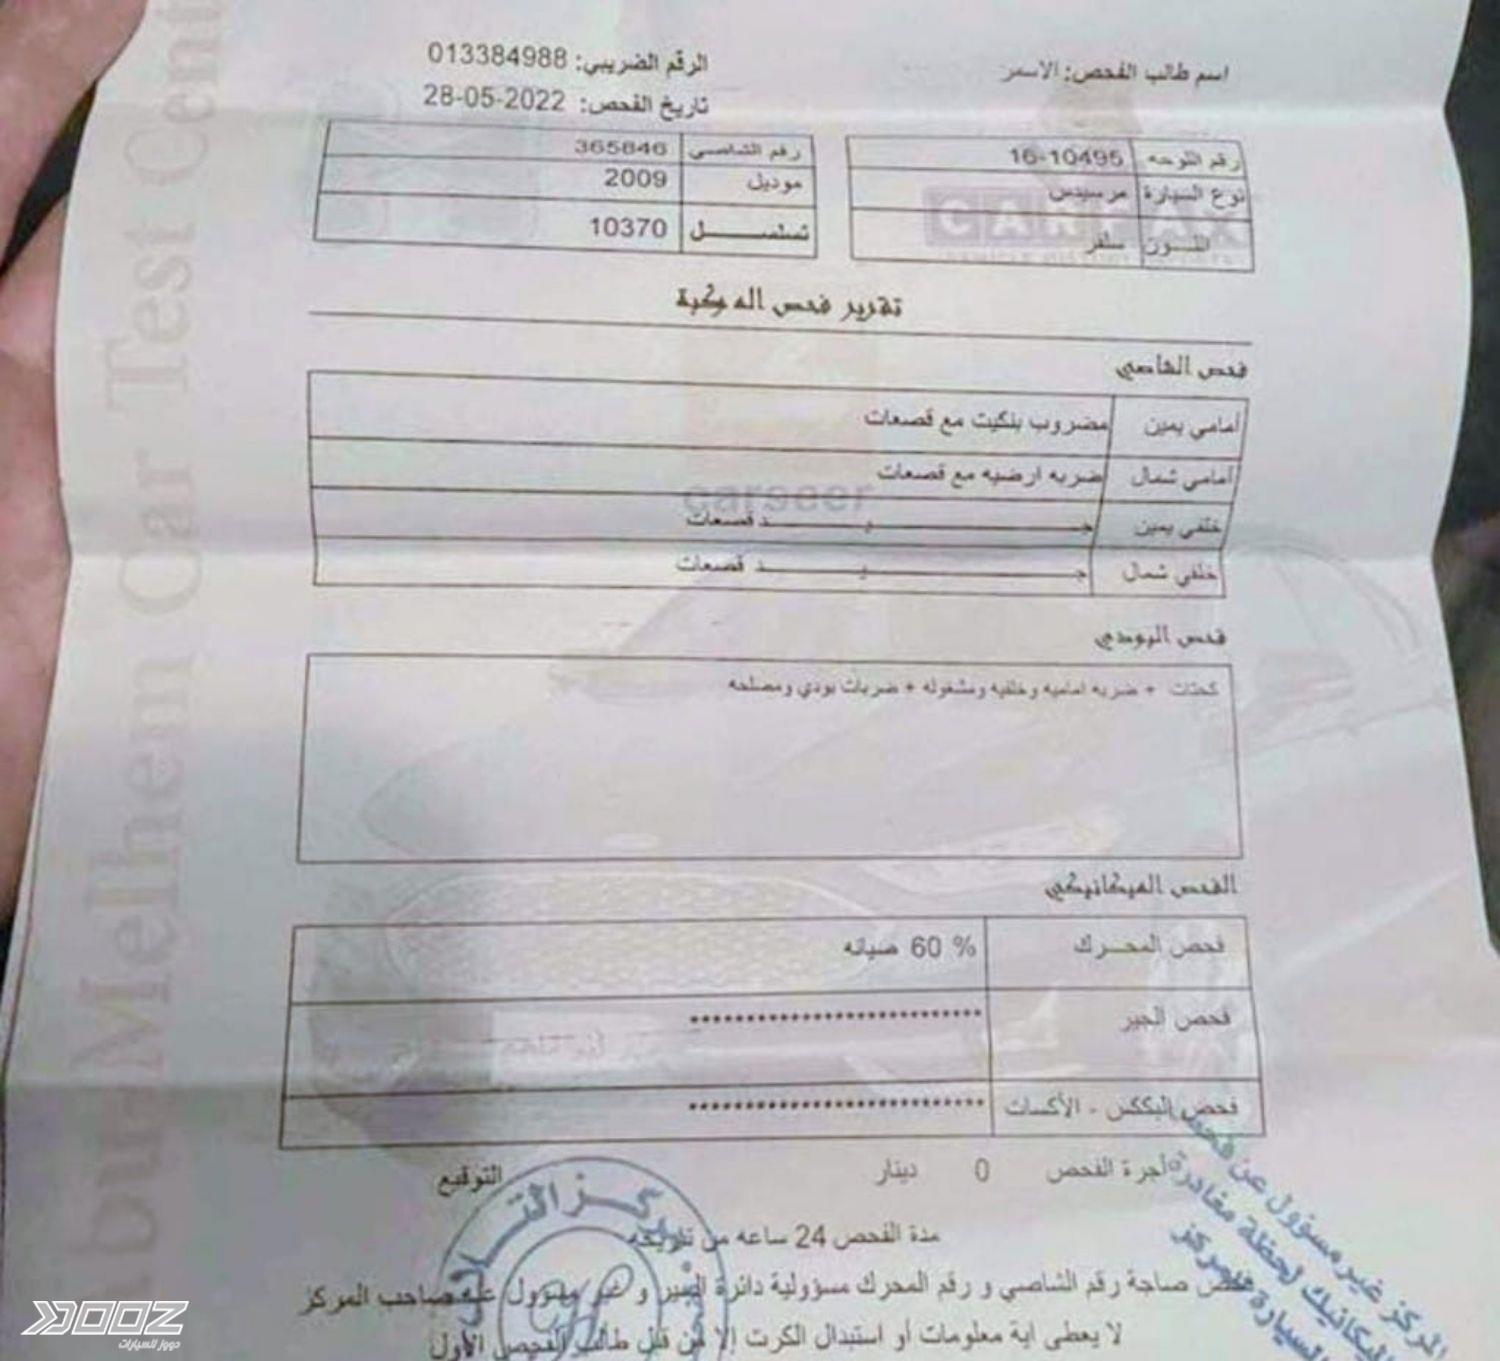 اسم طالب الفحص: الاسمر
الرقم الضريبي: 013384988
تاريخ الفحص: 28-05-2022
رقم اللوحه 16-10495
نوع السيارة مرسيدس
اللـــون سلفر
رقم الشاصي 365846
موديل 2009
تسلســـــل 10370
CARFAX
تقرير فحص المركبة
فحص الشاصي
أمامي يمين مضروب بنكيت مع قصعات
أمامي شمال ضربه ارضيه مع قصعات
carseer
خلفي يمين جـــــــيـــــــد قصعات
خلفي شمال جـــــــيـــــــد قصعات
فحص البودي
كحتات + ضربه اماميه وخلفيه ومشغوله + ضربات بودي ومصلحه
الفحص الميكانيكي
فحص المحـــرك % 60 صيانه
فحص الجير **************************
فحص البككس - الأكسات **************************
أجرة الفحص 0 دينار
التوقيع
مدة الفحص 24 ساعه من تاريخه
صاحة رقم الشاصي و رقم المحرك مسؤولية دائرة السير و غير مسؤول عنه صاحب المركز
لا يعطى اية معلومات أو استبدال الكرت إلا من قبل طالب الفحص الأول
Abu Melhem Car Test Cent
المركز غير مسؤول عن فحص
الميكانيك لحظة مغادرة
السيارة المركز
DOOZ
دووز للسيارات